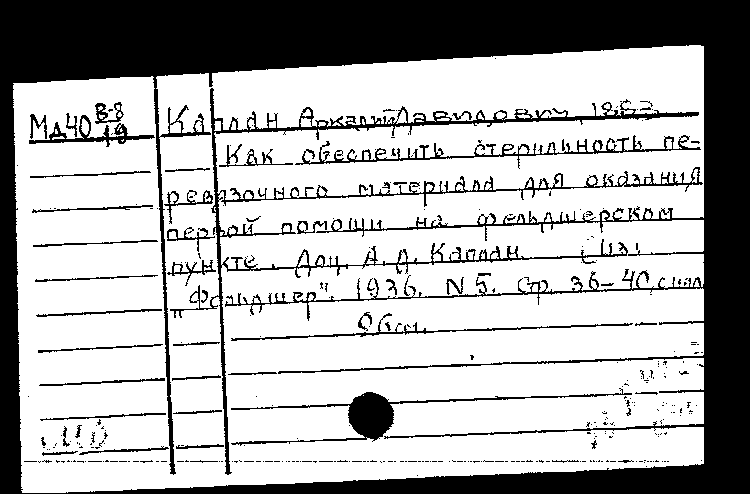 Мд40 В-8/19
Каплан, Аркадий Давидович, 1883
Как обеспечить стерильность пе-
ревязочного материала для оказания
первой помощи на фельдшерском
пункте. Доц. А. Д. Каплан. [Из:
"Фельдшер". 1936. N 5. Стр. 36-40, с илл.
26 см.